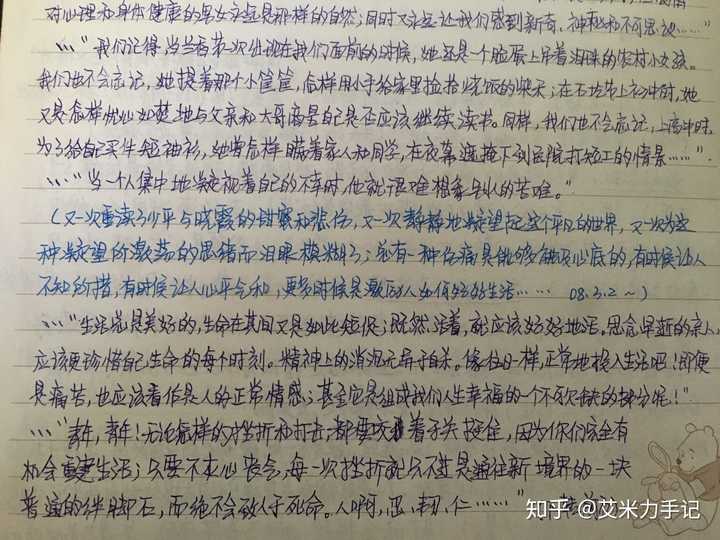 对心理和身体健康的男女永远是那样的自然；同时又永远让我们感到新奇、神秘和不可思议……”
……“我们记得，当兰香第一次出现在我们面前的时候，她还是一个脸蛋上吊着泪珠的农村小女孩。
我们也不会忘记，她提着那个小筐筐，怎样用小手给家里捡拾烧饭的柴天；在石圪节上初中时，她
又是怎样忧心如焚地与父亲和大哥商量自己是否应该继续读书。同样，我们也不会忘记，上高中时，
为了给自己买件短袖衫，她曾怎样瞒着家人和同学，在夜幕遮掩下到医院打短工的情景……”
……“当一个人集中地凝视着自己的不幸时，他就很难想象别人的苦难。”
（又一次重读了少平与晓霞的甜蜜和悲伤，又一次静静地凝望起这个平凡的世界，又一次为这
种凝望所激荡的思绪而泪眼模糊了；总有一种伤痛是能够触及心底的，有时候让人
不知所措，有时候让人心平气和，更多时候是激励人如何好好生活…… 08.3.2～）
……“生活总是美好的，生命在其间又是如此短促；既然活着，就应该好好地活。思念早逝的亲人，
应该更珍惜自己生命的每个时刻。精神上的消沉无异于自杀。像往日一样，正常地投入生活吧！即便
是痛苦，也应该看作是人的正常情感；甚至它是组成我们人生幸福的一个不可欠缺的部分呢！”
……“青年，青年！无论怎样的挫折和打击，都要咬着牙关挺住，因为你们完全有
机会重建生活；只要不灰心丧气，每一次挫折就只不过是通往新境界的一块
普通的绊脚石，而绝不会致人于死命。人啊，忍、韧、仁……”
知乎 @艾米力手记